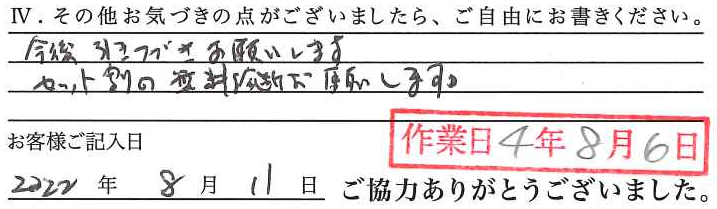 Ⅳ．その他お気づきの点がございましたら、ご自由にお書きください。
今後引きつづきお願いします
セット割の無料診断お願いします。
作業日4年8月6日
お客様ご記入日
2022 年 8 月 11 日 ご協力ありがとうございました。